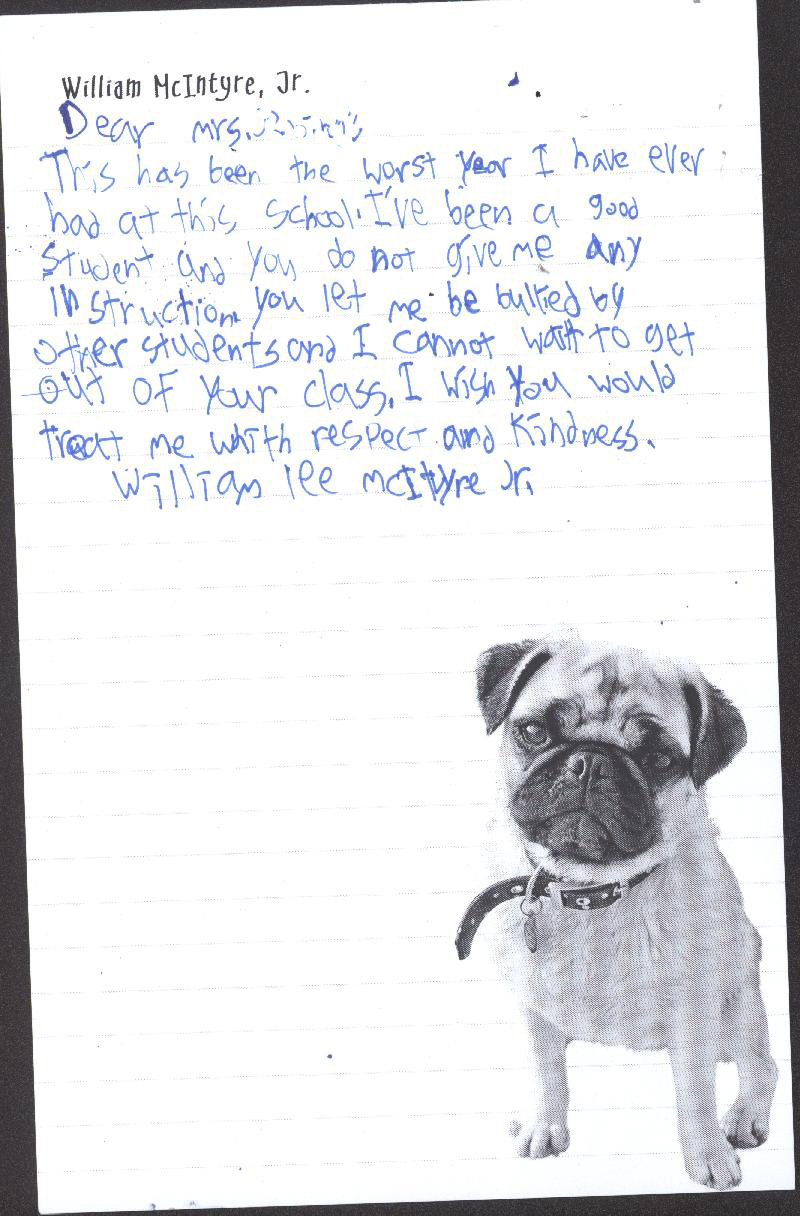 William McIntyre, Jr.
Dear mrs.
This has been the worst year I have ever
had at this school. I've been a good
student and you do not give me any
instruction you let me be bullied by
other students and I cannot wait to get
out of your class. I wish you would
treat me whith respect and kindness.
William lee mcItyre Jr.